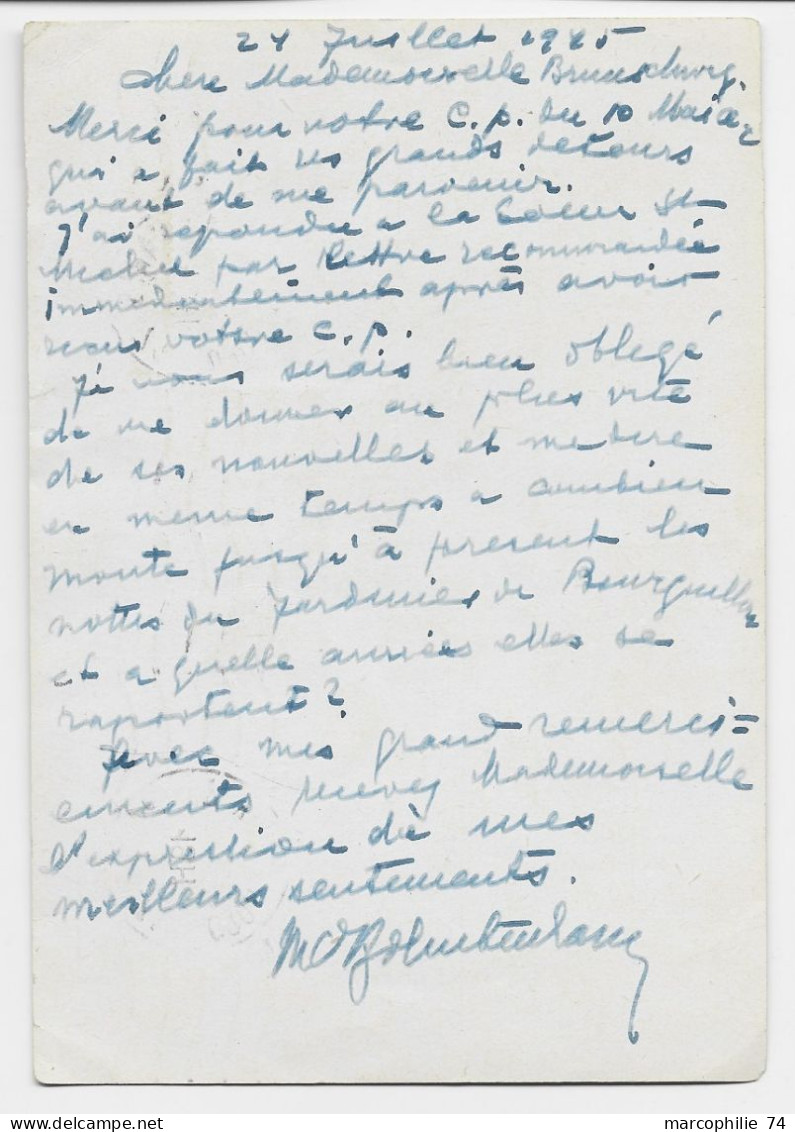 24 Juillet 1945
Chere Mademoiselle Brunschwig.
Merci pour votre C.p. du 10 Mai
qui a fait des grands detours
avant de me parvenir.
J'ai repondu a la Soeur St
par lettre recommandée
immediatement après avoir
recu votre C.p.
Je vous serais bien oblegé
de me donner au plus vite
de ses nouvelles et me dire
en meme temps a combien
monte jusqu'à present les
nottes du Jardinier de Bourguillon
et a quelle années elles se
raportent?
Avec mes grand remerci=
ements recevez Mademoiselle
l'expression de mes
meilleurs sentements.
marcophilie 74